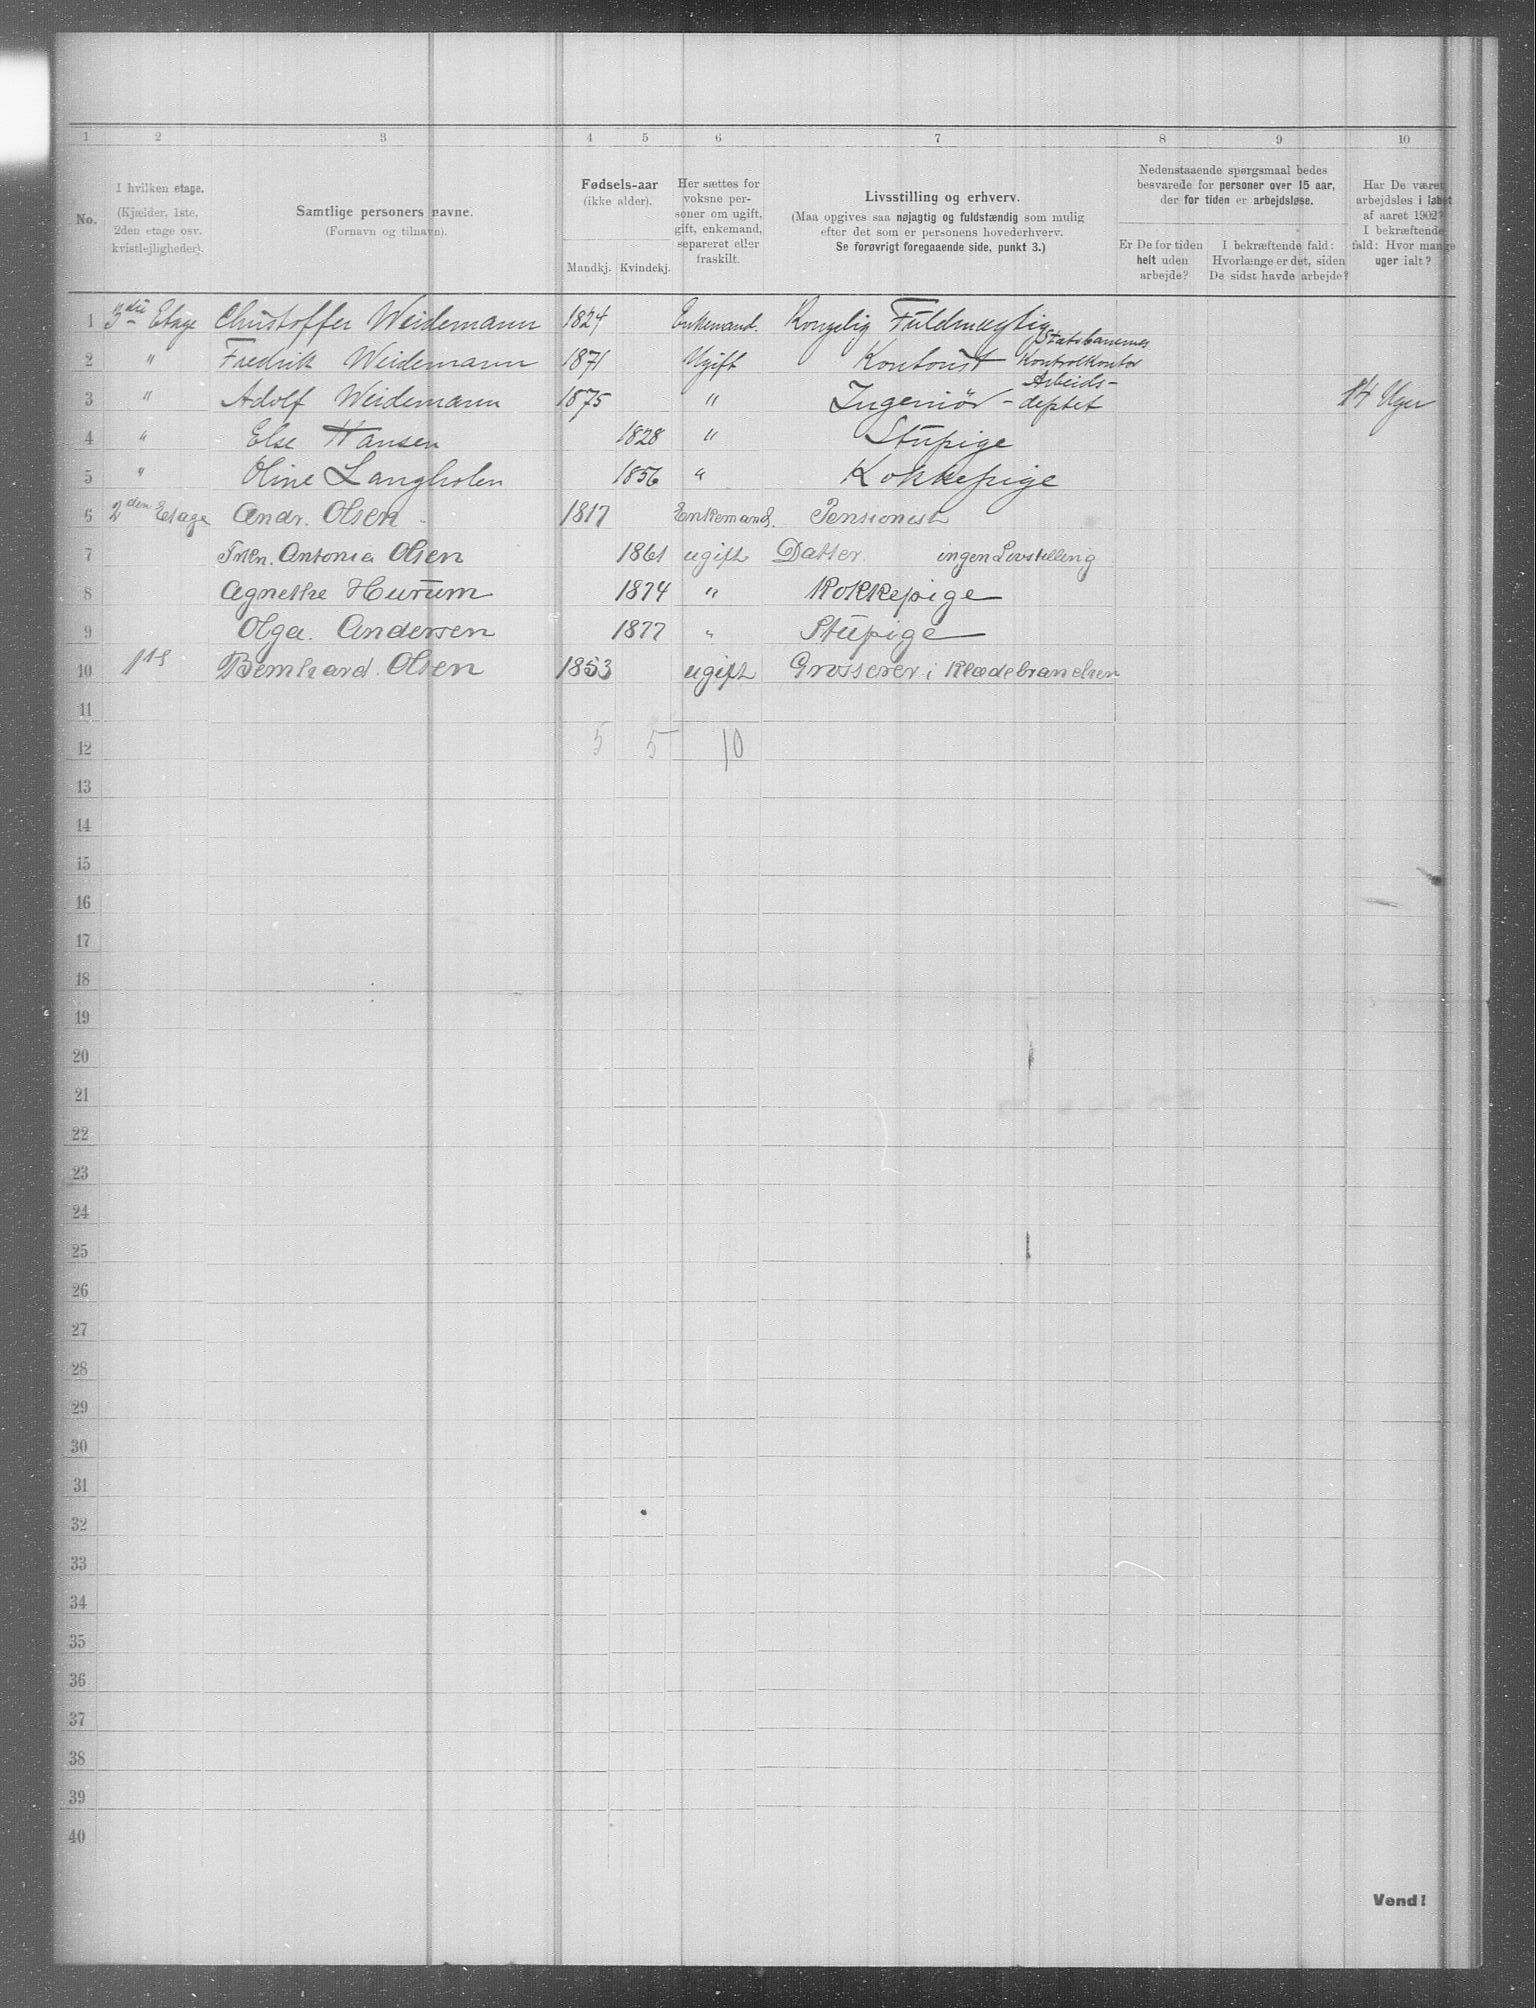 1 2 3 4 5 6 7 8 9 10
No.
I hvilken etage.
(Kjælder, 1ste,
2den etage osv.
kvistlejligheder).
Samtlige personers navne.
(Fornavn og tilnavn).
Fødsels-aar
(ikke alder).
Mandkj. Kvindekj.
Her sættes for
voksne per-
soner om ugift,
gift, enkemand,
separeret eller
fraskilt.
Livsstilling og erhverv.
(Maa opgives saa nøjagtig og fuldstændig som mulig
efter det som er personens hovederhverv.
Se forøvrigt foregaaende side, punkt 3.)
Nedenstaaende spørgsmaal bedes
besvarede for personer over 15 aar,
der for tiden er arbejdsløse.
Er De for tiden
helt uden
arbejde?
I bekræftende fald:
Hvorlænge er det, siden
De sidst havde arbejde?
Har De været
arbejdsløs i løbet
af aaret 1902?
I bekræftende
fald: Hvor mange
uger ialt?
1 3die Etage Christoffer Weidemann 1824 Enkemand. Kongelig Fuldmægtig
2 " Fredrik Weidemann 1871 Ugift Kontorist Statsbanernes Kontrolkontor
3 " Adolf Weidemann 1875 " Ingeniør - Arbeids-deptet 14 Uger
4 " Else Hansen 1828 " Stupige
5 " Oline Langholen 1856 " Kokkepige
6 2den Etage Andr. Olsen 1817 Enkemand. Pensionist
7 Frkn. Antonia Olsen 1861 ugift Datter. ingen Livstilling
8 Agnethe Hurum 1874 " Kokkepige
9 Olga. Andersen 1877 " Stupige
10 1ste Bernhard Olsen 1853 ugift Grosserer i Klædebranchen
11
12 5 5 10
13
14
15
16
17
18
19
20
21
22
23
24
25
26
27
28
29
30
31
32
33
34
35
36
37
38
39
40
Vend!